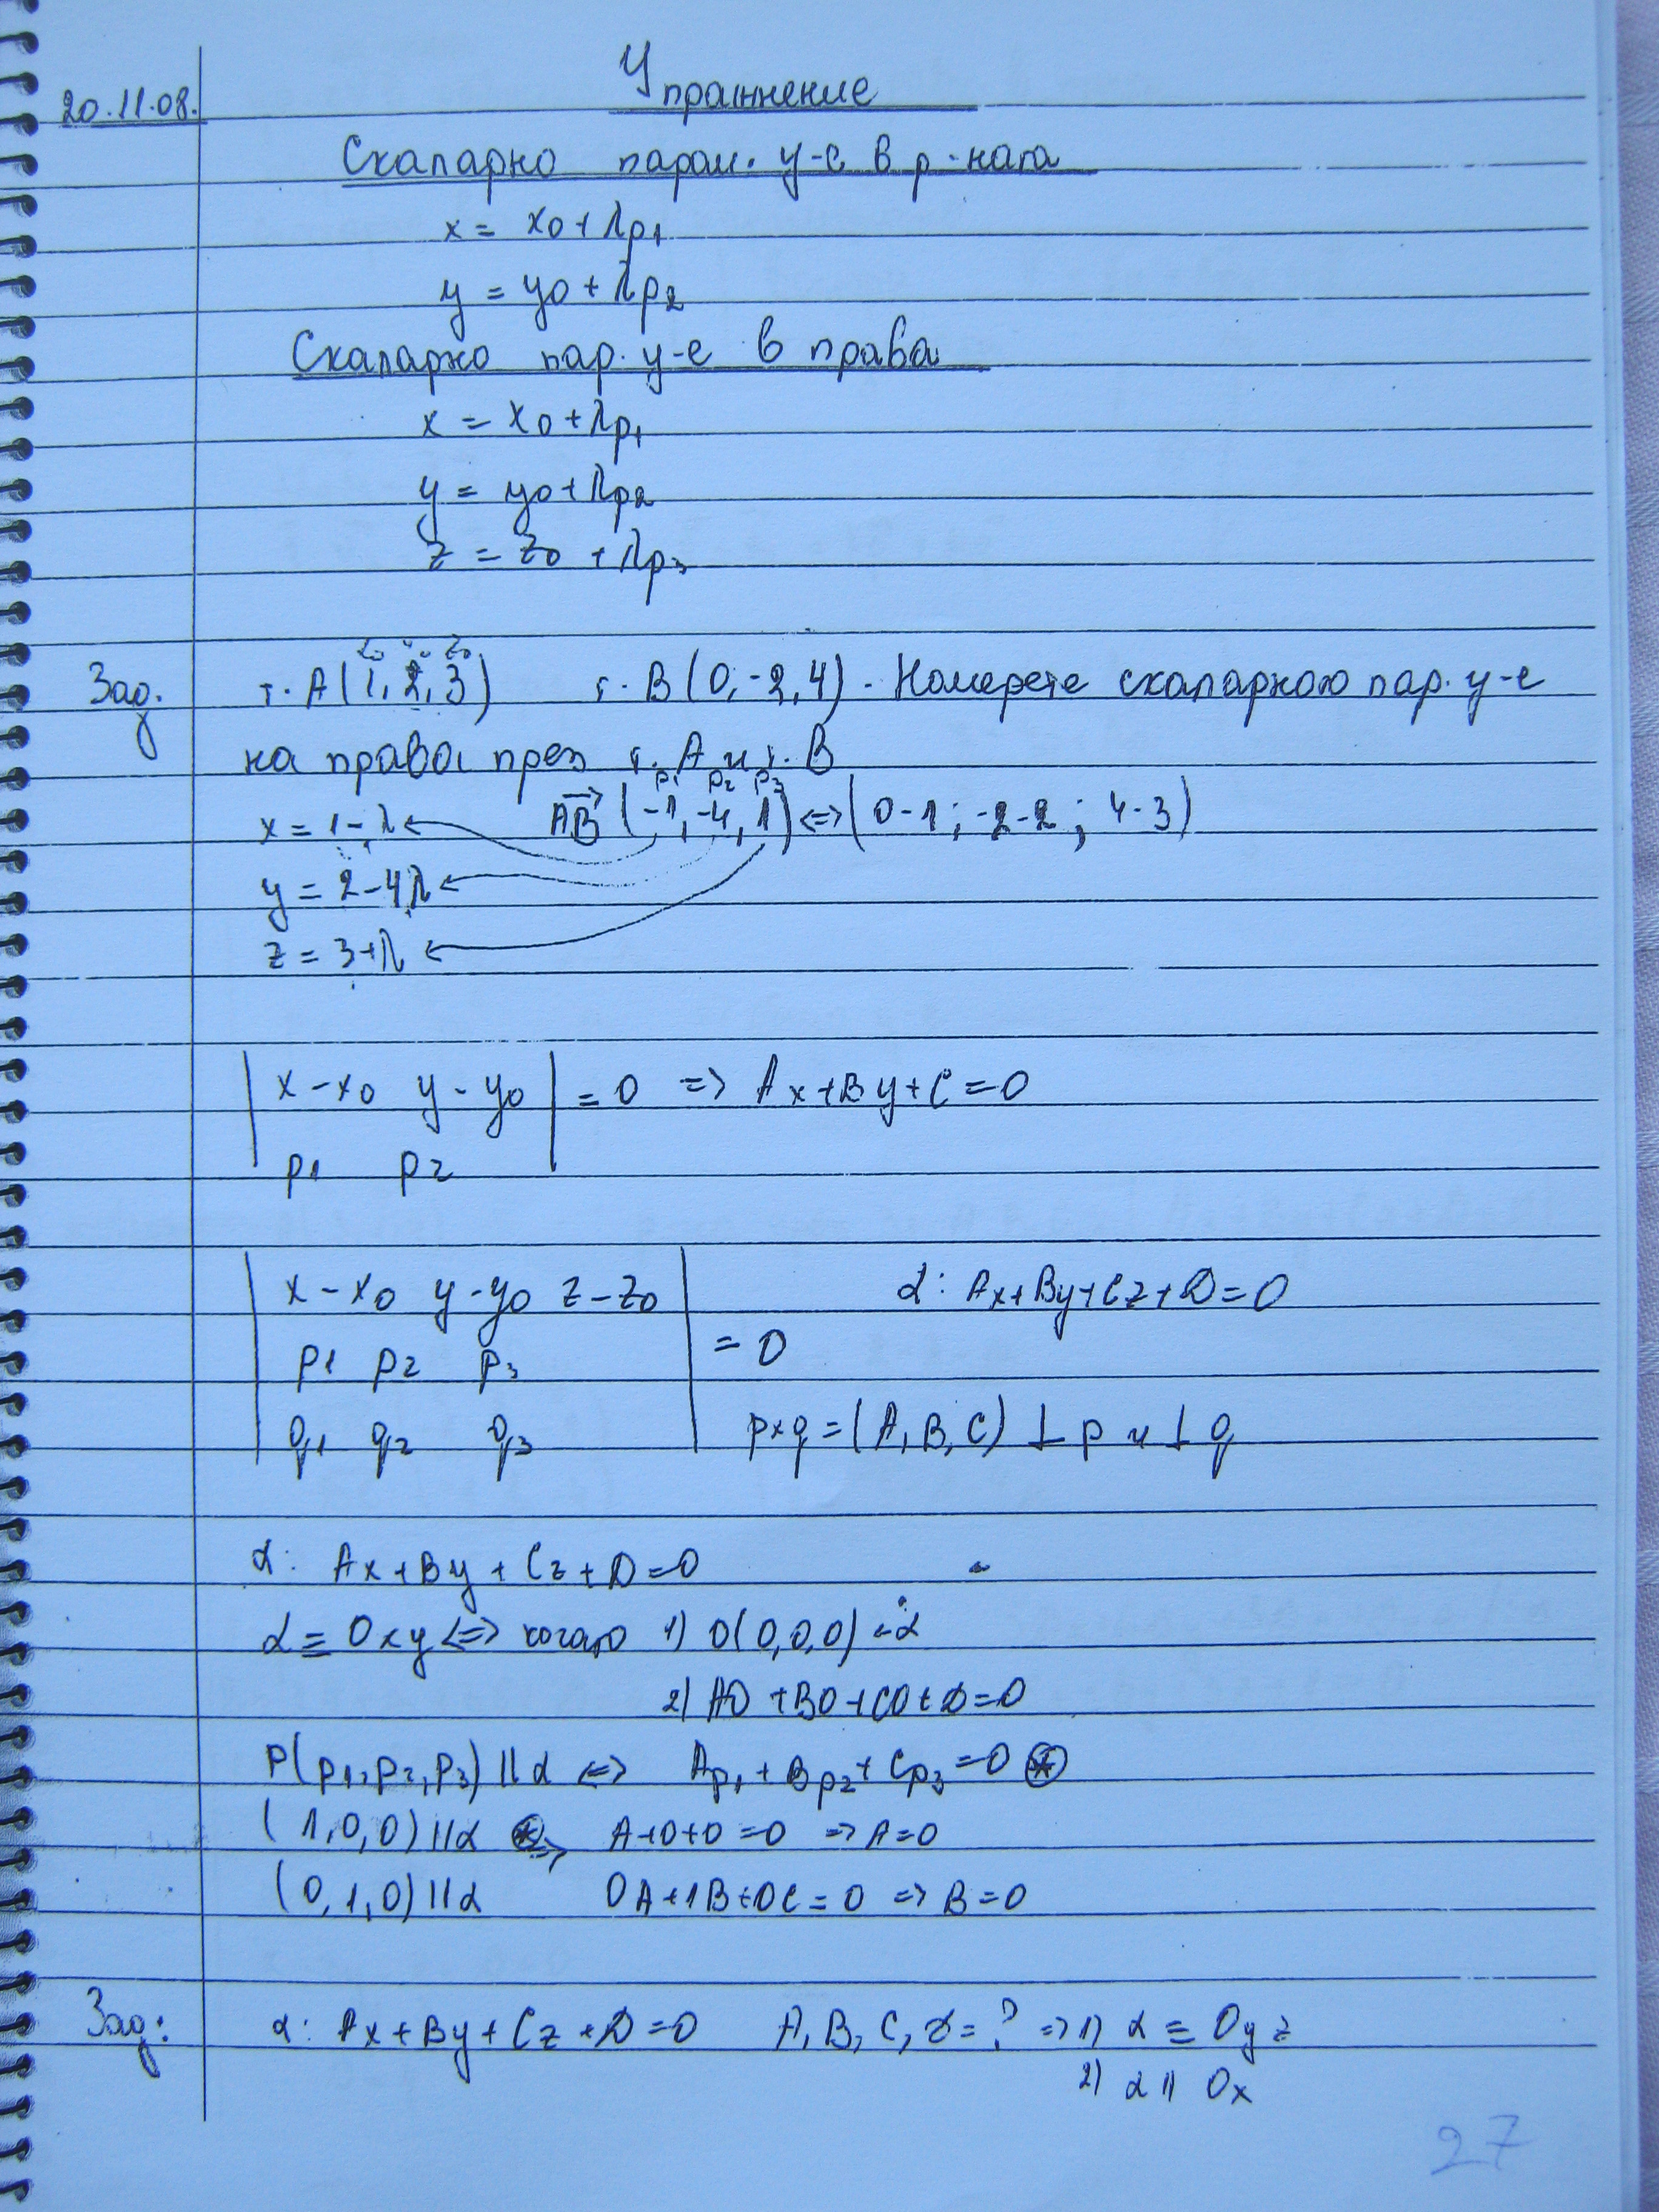 20.11.08.
Упражнение
Скаларно парам. у-е в р-ната
x = x0 + λp1
y = y0 + λp2
Скаларно пар. у-е в права
x = x0 + λp1
y = y0 + λp2
z = z0 + λp3
Зад. т. A(1, 2, 3) т. B(0, -2, 4). Намерете скаларното пар. у-е
на права през т. A и т. B
p1 p2 p3
x = 1 - λ AB (-1, -4, 1) <=> (0-1; -2-2; 4-3)
y = 2 - 4λ
z = 3 + λ
| x - x0 y - y0 | = 0 => Ax + By + C = 0
p1 p2
| x - x0 y - y0 z - z0 | α: Ax + By + Cz + D = 0
p1 p2 p3 = 0
q1 q2 q3 p×q = (A, B, C) ⊥ p и ⊥ q
α: Ax + By + Cz + D = 0
α ≡ Oxy <=> когато 1) O(0,0,0) α
2) A0 + B0 + C0 + D = 0
P(p1, p2, p3) || α <=> Ap1 + Bp2 + Cp3 = 0 ⊛
(1, 0, 0) || α ⊛=> A + 0 + 0 = 0 => A = 0
(0, 1, 0) || α 0A + 1B + 0C = 0 => B = 0
Зад: α: Ax + By + Cz + D = 0 A, B, C, D = ? => 1) α ≡ Oyz
2) α || Ox
27